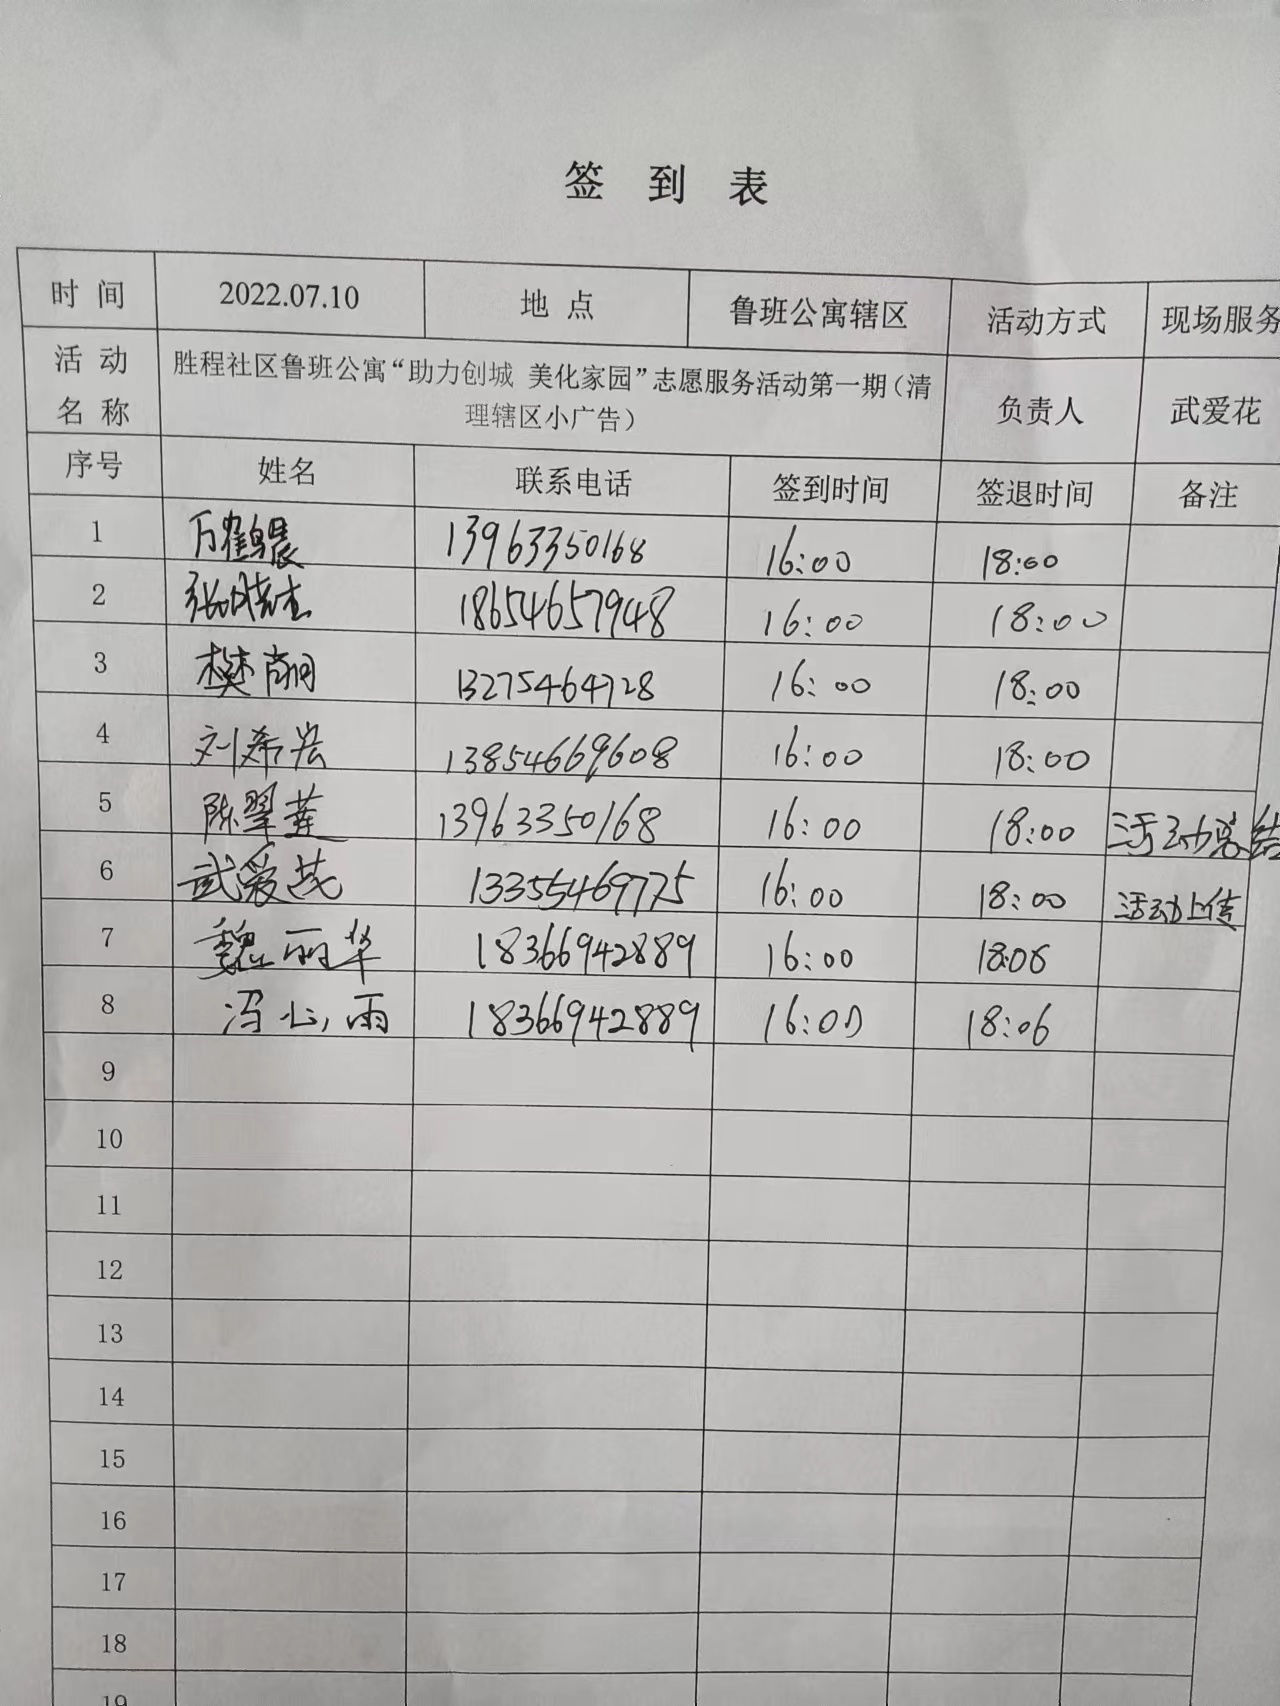 签 到 表
时 间 2022.07.10 地 点 鲁班公寓辖区 活动方式 现场服务
活 动 名 称 胜程社区鲁班公寓“助力创城 美化家园”志愿服务活动第一期（清
理辖区小广告） 负责人 武爱花
序号 姓名 联系电话 签到时间 签退时间 备注
1 万鹤晨 13963350168 16:00 18:00
2 张 18654657948 16:00 18:00
3 樊 13275464728 16:00 18:00
4 刘希宏 13854669608 16:00 18:00
5 陈翠莲 13963350168 16:00 18:00 活动总结
6 武爱花 13355469775 16:00 18:00 活动上传
7 魏丽华 18366942889 16:00 18:06
8 冯心雨 18366942889 16:00 18:06
9
10
11
12
13
14
15
16
17
18
19